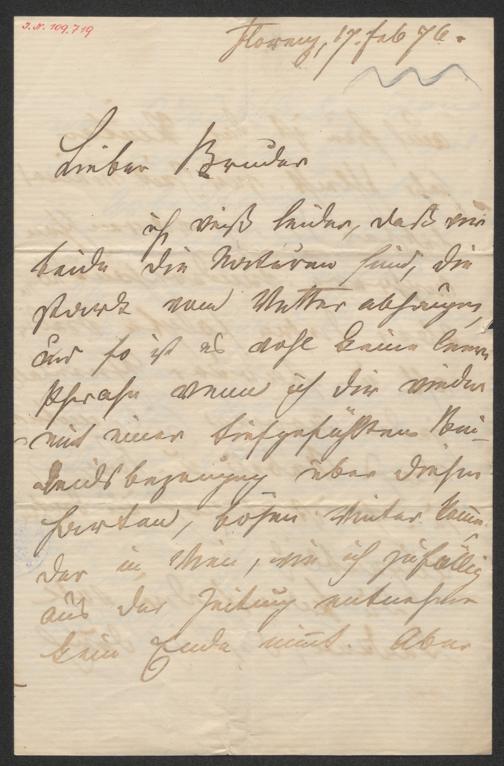 J.N. 109.719
Florenz, 17. Feb 76.
Lieber Bruder
ich weiß leider, daß wir
beide die Naturen sind, die
stark vom Wetter abhängen,
und so ist es wohl keine leere
Phrase wenn ich dir wieder
mit einer tiefgefühlten Bei-
leidsbezeugung über diesen
harten, bösen Winter komme,
der in Wien, wie ich zufällig
aus der Zeitung entnehme
kein Ende nimt. Aber